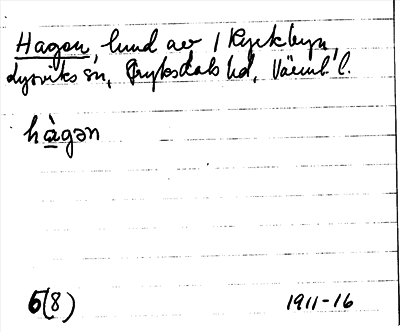 Hagen, lund av 1 Kyrkbyn,
Lysviks sn, Fryksdals hd, Värml. l.
hàgən
6(8) 1911-16